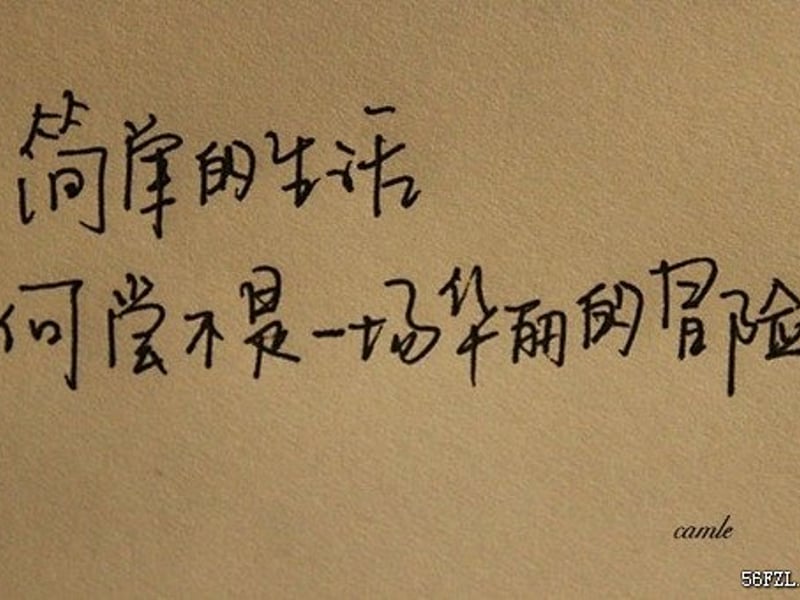 简单的生活
何尝不是一场华丽的冒险
camle
56FZL.